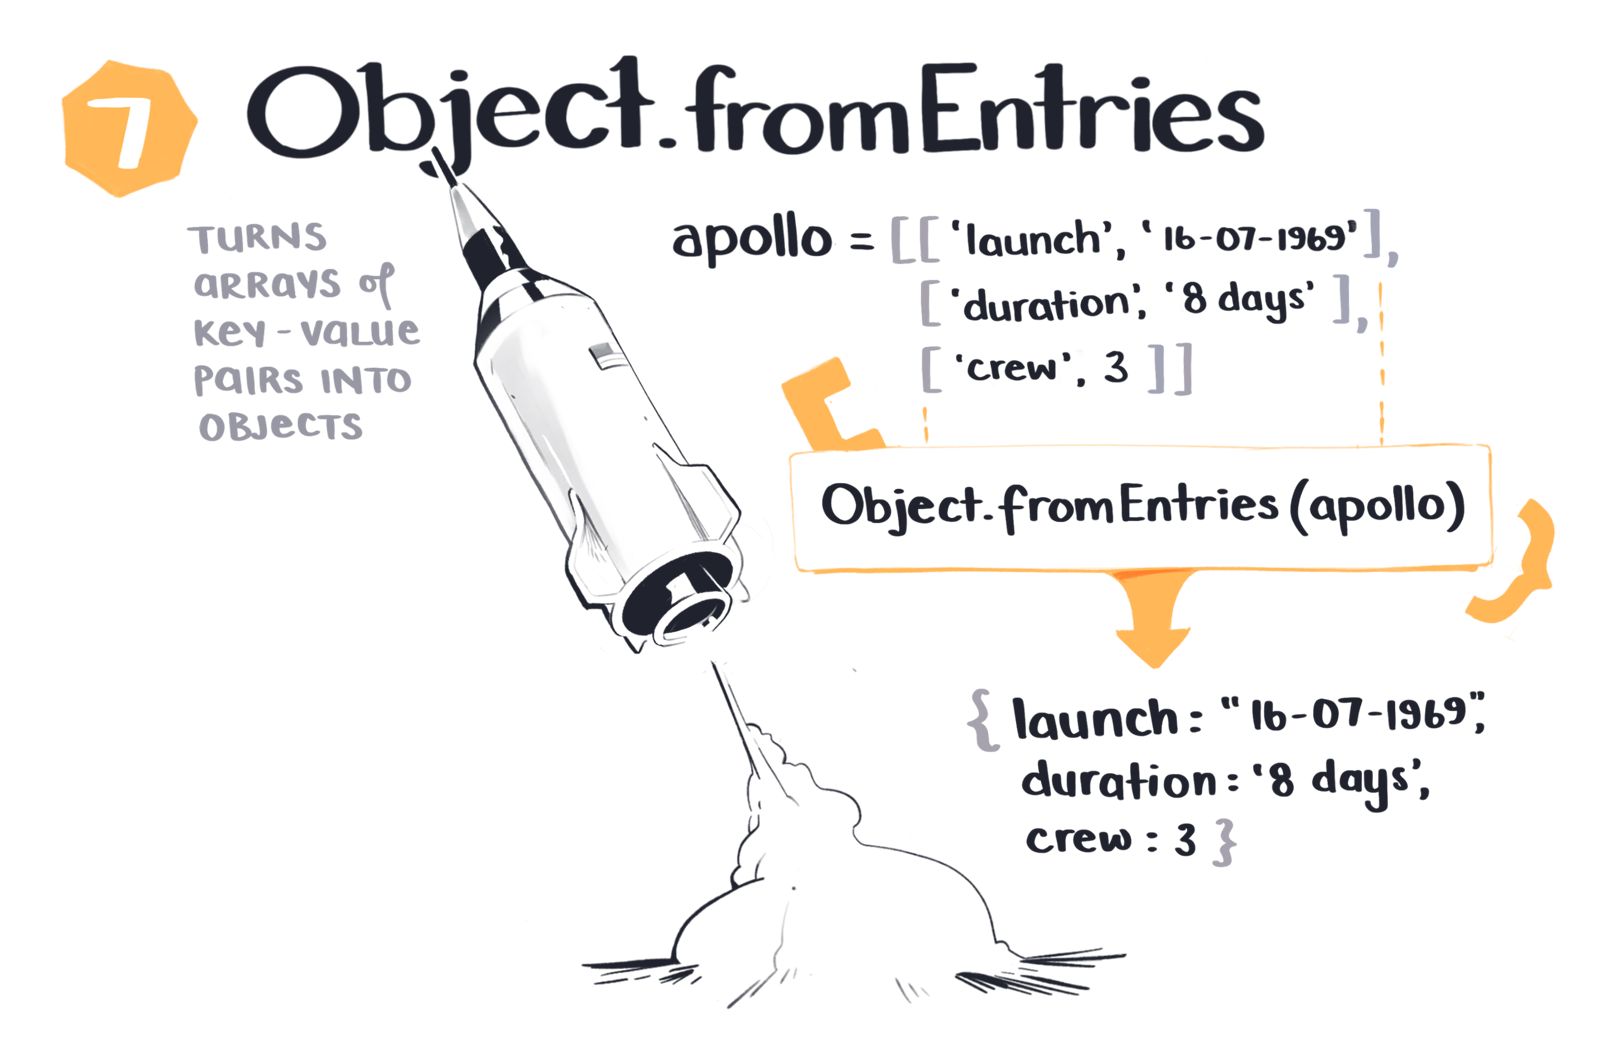 7
Object.fromEntries
TURNS
ARRAYS of
KEY-VALUE
PAIRS INTO
OBJECTS
apollo = [[ 'launch', '16-07-1969'],
[ 'duration', '8 days' ],
[ 'crew', 3 ]]
Object.fromEntries (apollo)
{ launch: "16-07-1969",
duration: '8 days',
crew: 3 }